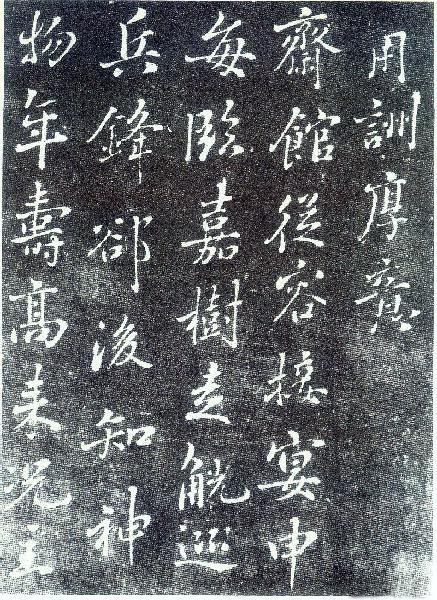 用詶厚賚
齋館從容接宴申
每臨嘉樹走觥巡
兵鋒郤後知神
物年壽高来况主